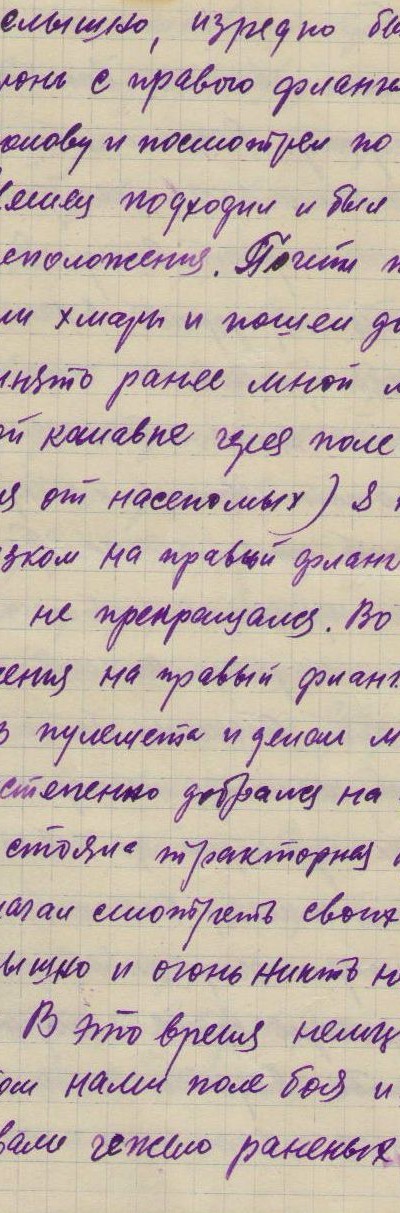 слышно, изредно бы
гонь с правого фланг
олову и посмотрел по
Немец подходил и был
сположения. Почти
ли хмары и пошел д
инять ранее мной м
ой канавне через поле
я от насекомых) я
зком на правый фланг
не прекращался. Во
ения на правый фланг
з пулемета и делал м
степенно добрался на
стояла тракторная
начал смотреть своих
ышно и огонь никто н
В это время немц
ом нами поле боя и
вали тежело раненых